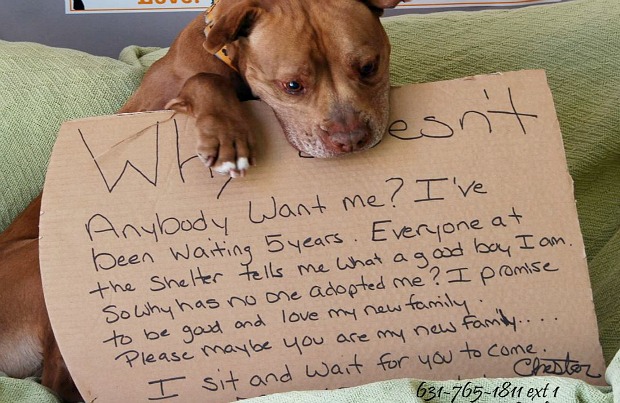 Why Doesn't
Anybody Want me? I've
been waiting 5 years. Everyone at
the shelter tells me what a good boy I am.
So why has no one adopted me? I promise
to be good and love my new family.
Please maybe you are my new family....
I sit and wait for you to come.
Chester
631-765-1811 ext 1